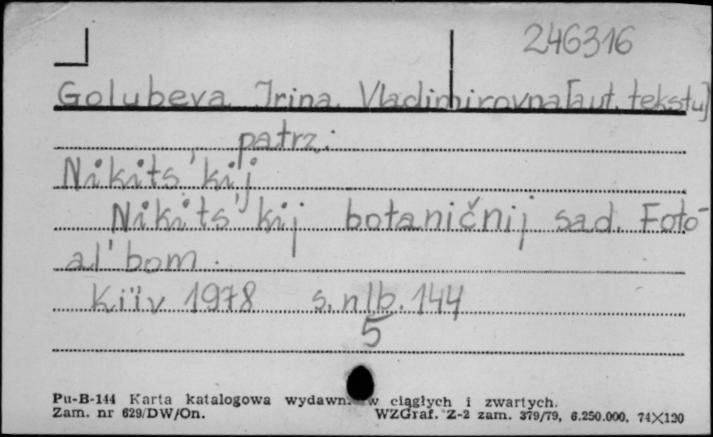 246316
Golubeva Irina Vladimirovna [aut. tekstu]
patrz:
Nikits'kij
Nikits'kij botaničnij sad. Foto-
al'bom.
Kiïv 1978 s. nlb. 144
5
Pu-B-144 Karta katalogowa wydawn. w ciągłych i zwartych.
Zam. nr 629/DW/On. WZGraf. Z-2 zam. 379/79, 6.250.000, 74X120